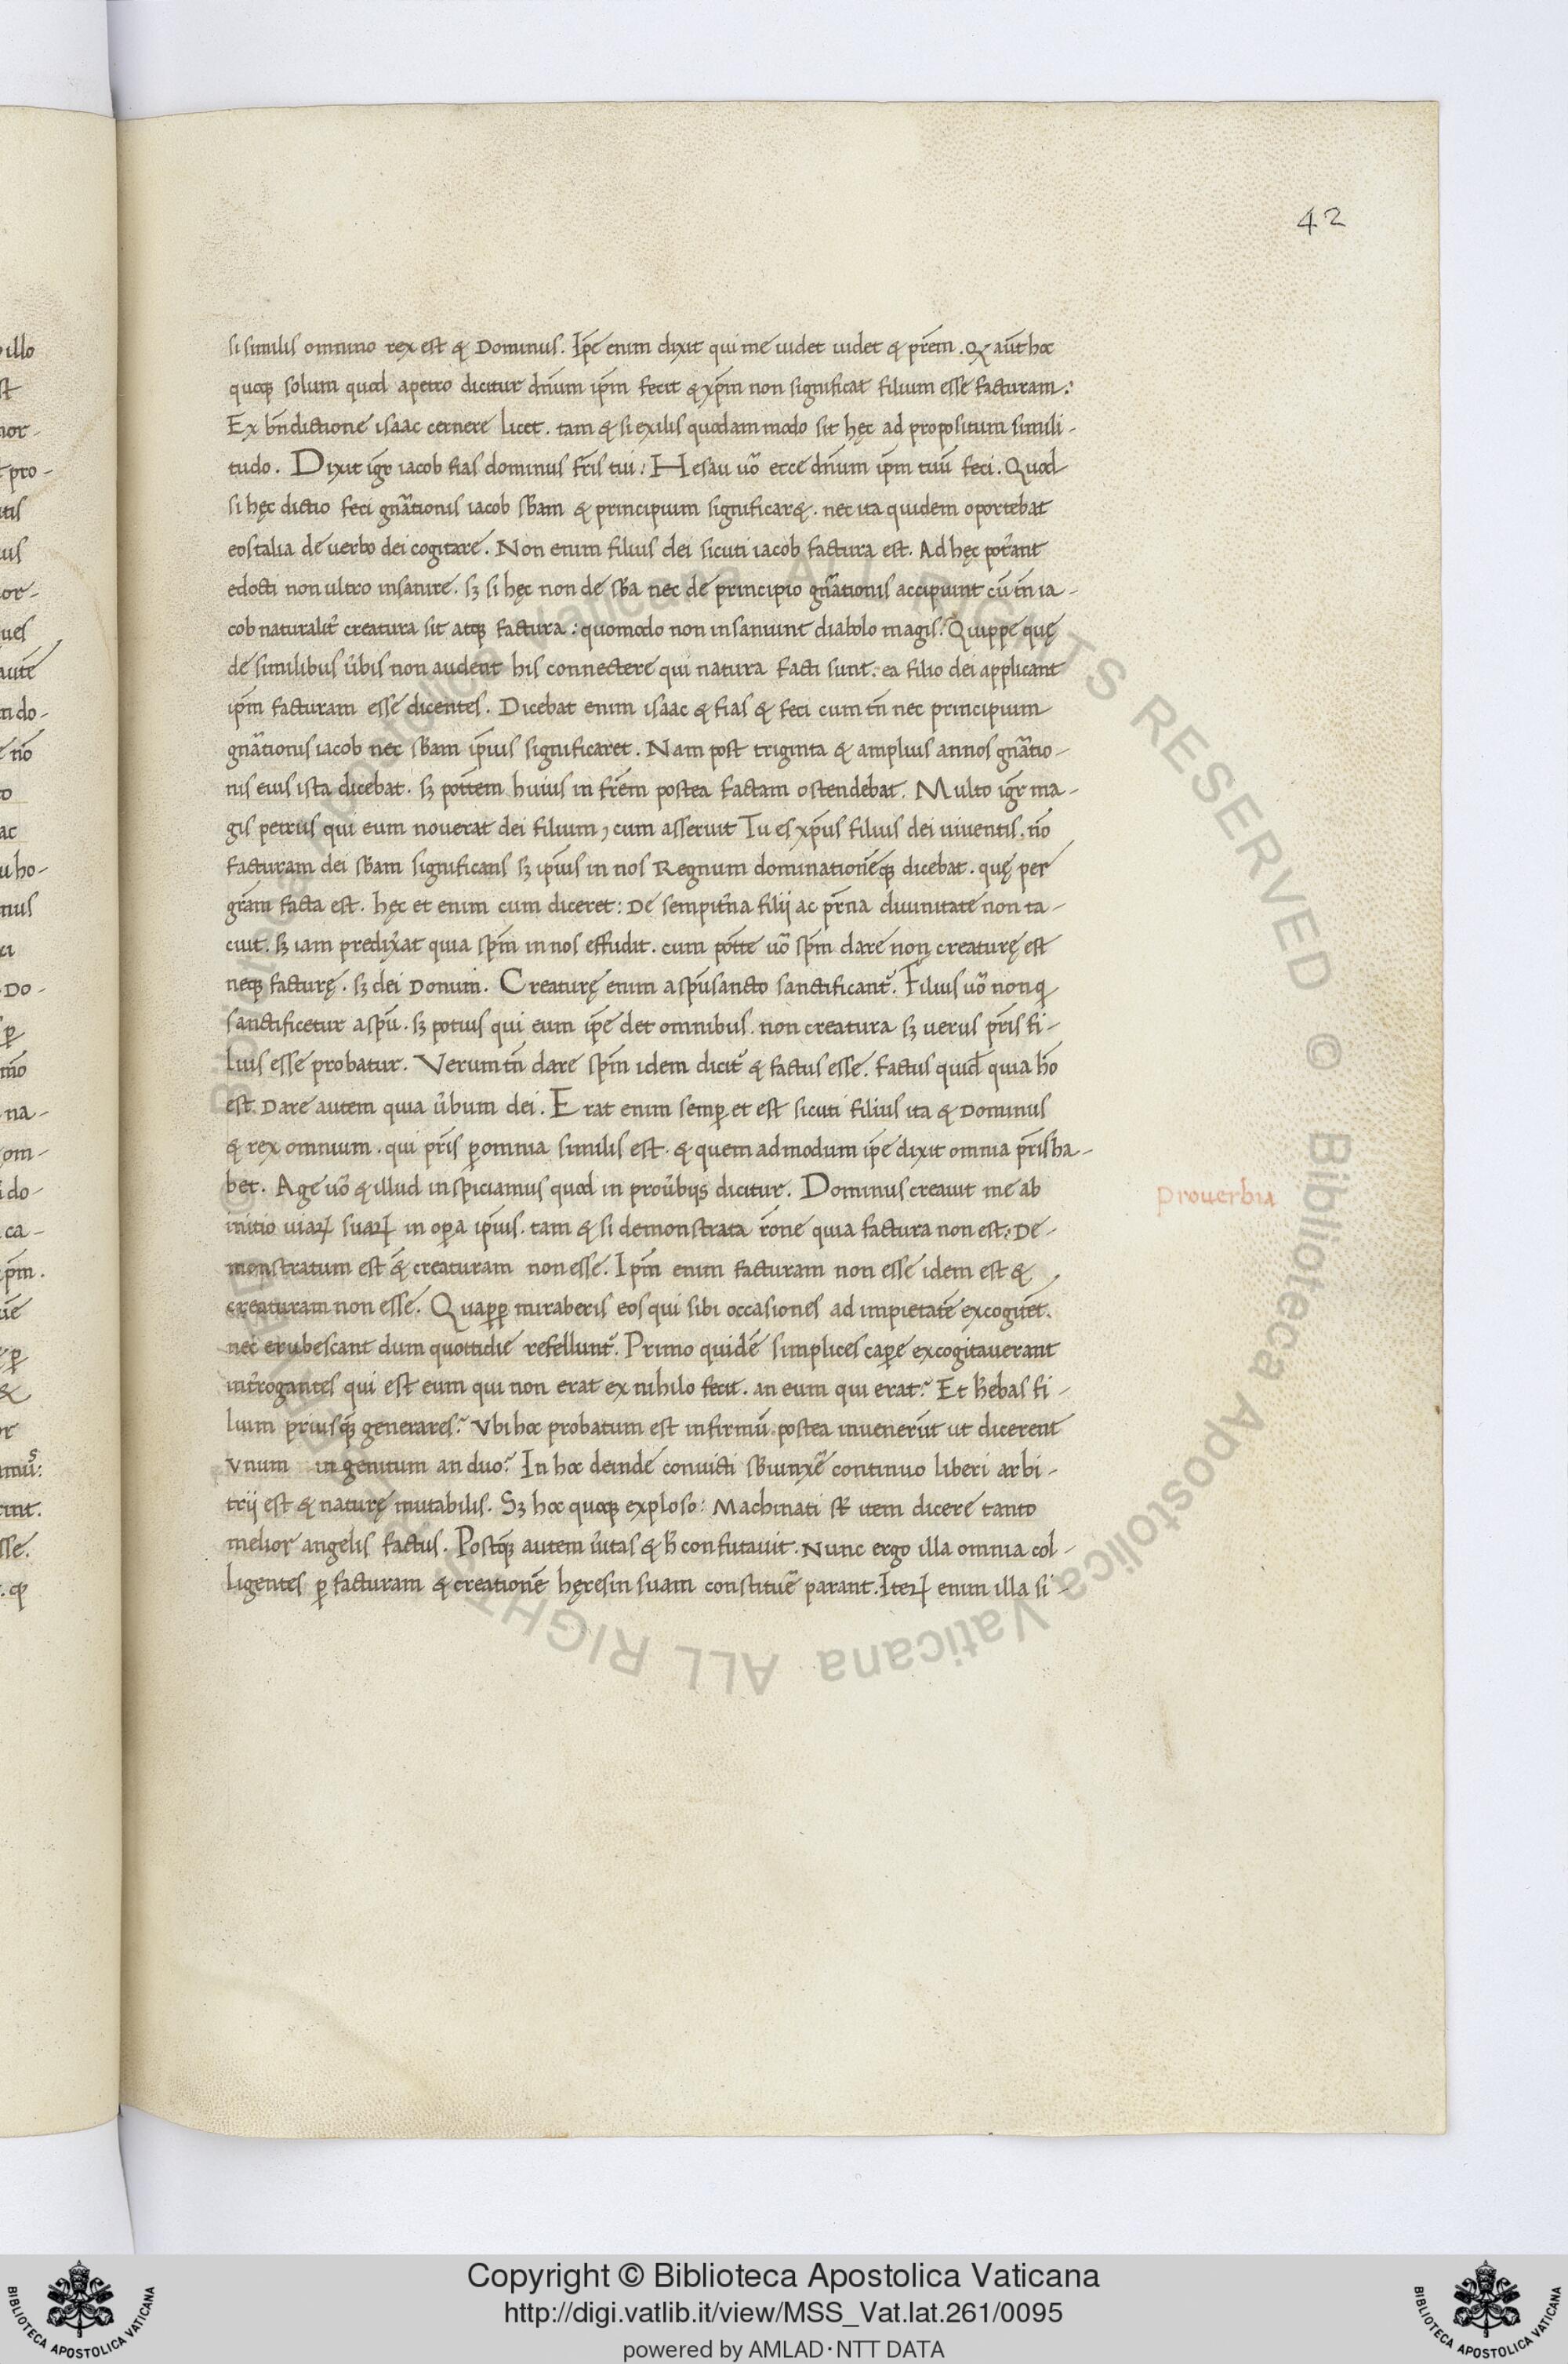 42
si similis omnino rex est & Dominus. Ip̄e enim dixit qui me uidet uidet & pr̄em. Q aūt hoc
quoq; solum quod apetro dicitur dn̄um ip̄m fecit & xp̄m non significat filium esse facturam:
Ex bn̄dictione isaac cernere licet. tam & si exilis quodam modo sit hęc ad propositum simili-
tudo. Dixit igr̄ iacob fias dominus fr̄is tui: Hesau uō ecce dn̄um ip̄m tuū feci. Quod
si hęc dictio feci gn̄ationis iacob sb̄am & principium significar&. nec ita quidem oportebat
eos talia de uerbo dei cogitare. Non enim filius dei sicuti iacob factura est. Ad hęc pot̄ant
edocti non ultro insanire. sꝫ si hęc non de sb̄a nec de principio gn̄ationis accipiunt cū tn̄ ia-
cob naturalit̄ creatura sit atq; factura: quomodo non insaniunt diabolo magis? Quippe quę
de similibus ūbis non audent his connectere qui natura facti sunt. ea filio dei applicant
ip̄m facturam esse dicentes. Dicebat enim isaac & fias & feci cum tn̄ nec principium
gn̄ationis iacob nec sb̄am ip̄ius significaret. Nam post triginta & amplius annos gn̄atio-
nis eius ista dicebat. sꝫ pot̄tem huius in fr̄em postea factam ostendebat. Multo igr̄ ma-
gis petrus qui eum nouerat dei filium, cum asseruit Tu es xp̄us filius dei uiuentis. nō
facturam dei sb̄am significans sꝫ ip̄ius in nos Regnum dominationēq; dicebat. quę per
gr̄am facta est. hęc et enim cum diceret: De sempit̄na filij ac pr̄na diuinitate non ta-
cuit. sꝫ iam predix̄at quia sp̄m in nos effudit. cum pot̄te uō sp̄m dare non creaturę est
neq; facturę. sꝫ dei Donum. Creaturę enim a sp̄usancto sanctificant᷑. Filius uō non ꝗ
sanctificetur a sp̄u. sꝫ potius qui eum ip̄e det omnibus. non creatura sꝫ uerus pr̄is fi-
lius esse probatur. Verum tn̄ dare sp̄m idem dicit᷑ & factus esse. Factus quid̄ quia hō
est. Dare autem quia ūbum dei. Erat enim semꝑ et est sicuti filius ita & Dominus
& rex omnium. qui pr̄is ꝑ omnia similis est. & quem admodum ip̄e dixit omnia pr̄is ha-
bet. Age uō & illud inspiciamus quod in prou̅bijs dicitur. Dominus creauit me ab
initio uiaꝝ suaꝝ in oꝑa ip̄ius. tam & si demonstrata rōne quia factura non est: De-
monstratum est & creaturam non esse. Ip̄m enim facturam non esse idem est &
creaturam non esse. Quaꝓꝑ miraberis eos qui sibi occasiones ad impietatē excogitēt.
nec erubescant dum quottidie refellunt᷑. Primo quidē simplices caꝑe excogitauerant
int̄rogantes qui est eum qui non erat ex nihilo fecit. an eum qui erat? Et h̄ebas fi-
lium priusq̄ generares? Vbi hoc probatum est infirmū postea inuenerūt ut dicerent
Vnum in genitum an duo? In hoc deinde conuicti sb̄iunxē continuo liberi arbi-
trij est & naturę mutabilis. Sꝫ hoc quoq; exploso: Machinati st̄ item dicere tanto
melior angelis factus. Postq̄ autem ūitas & h̄ confutauit. Nunc ergo illa omnia col-
ligentes ꝑ facturam & creationē hęresin suam constituē parant. Iteꝝ enim illa si-
Prouerbia
Copyright © Biblioteca Apostolica Vaticana
http://digi.vatlib.it/view/MSS_Vat.lat.261/0095
powered by AMLAD·NTT DATA